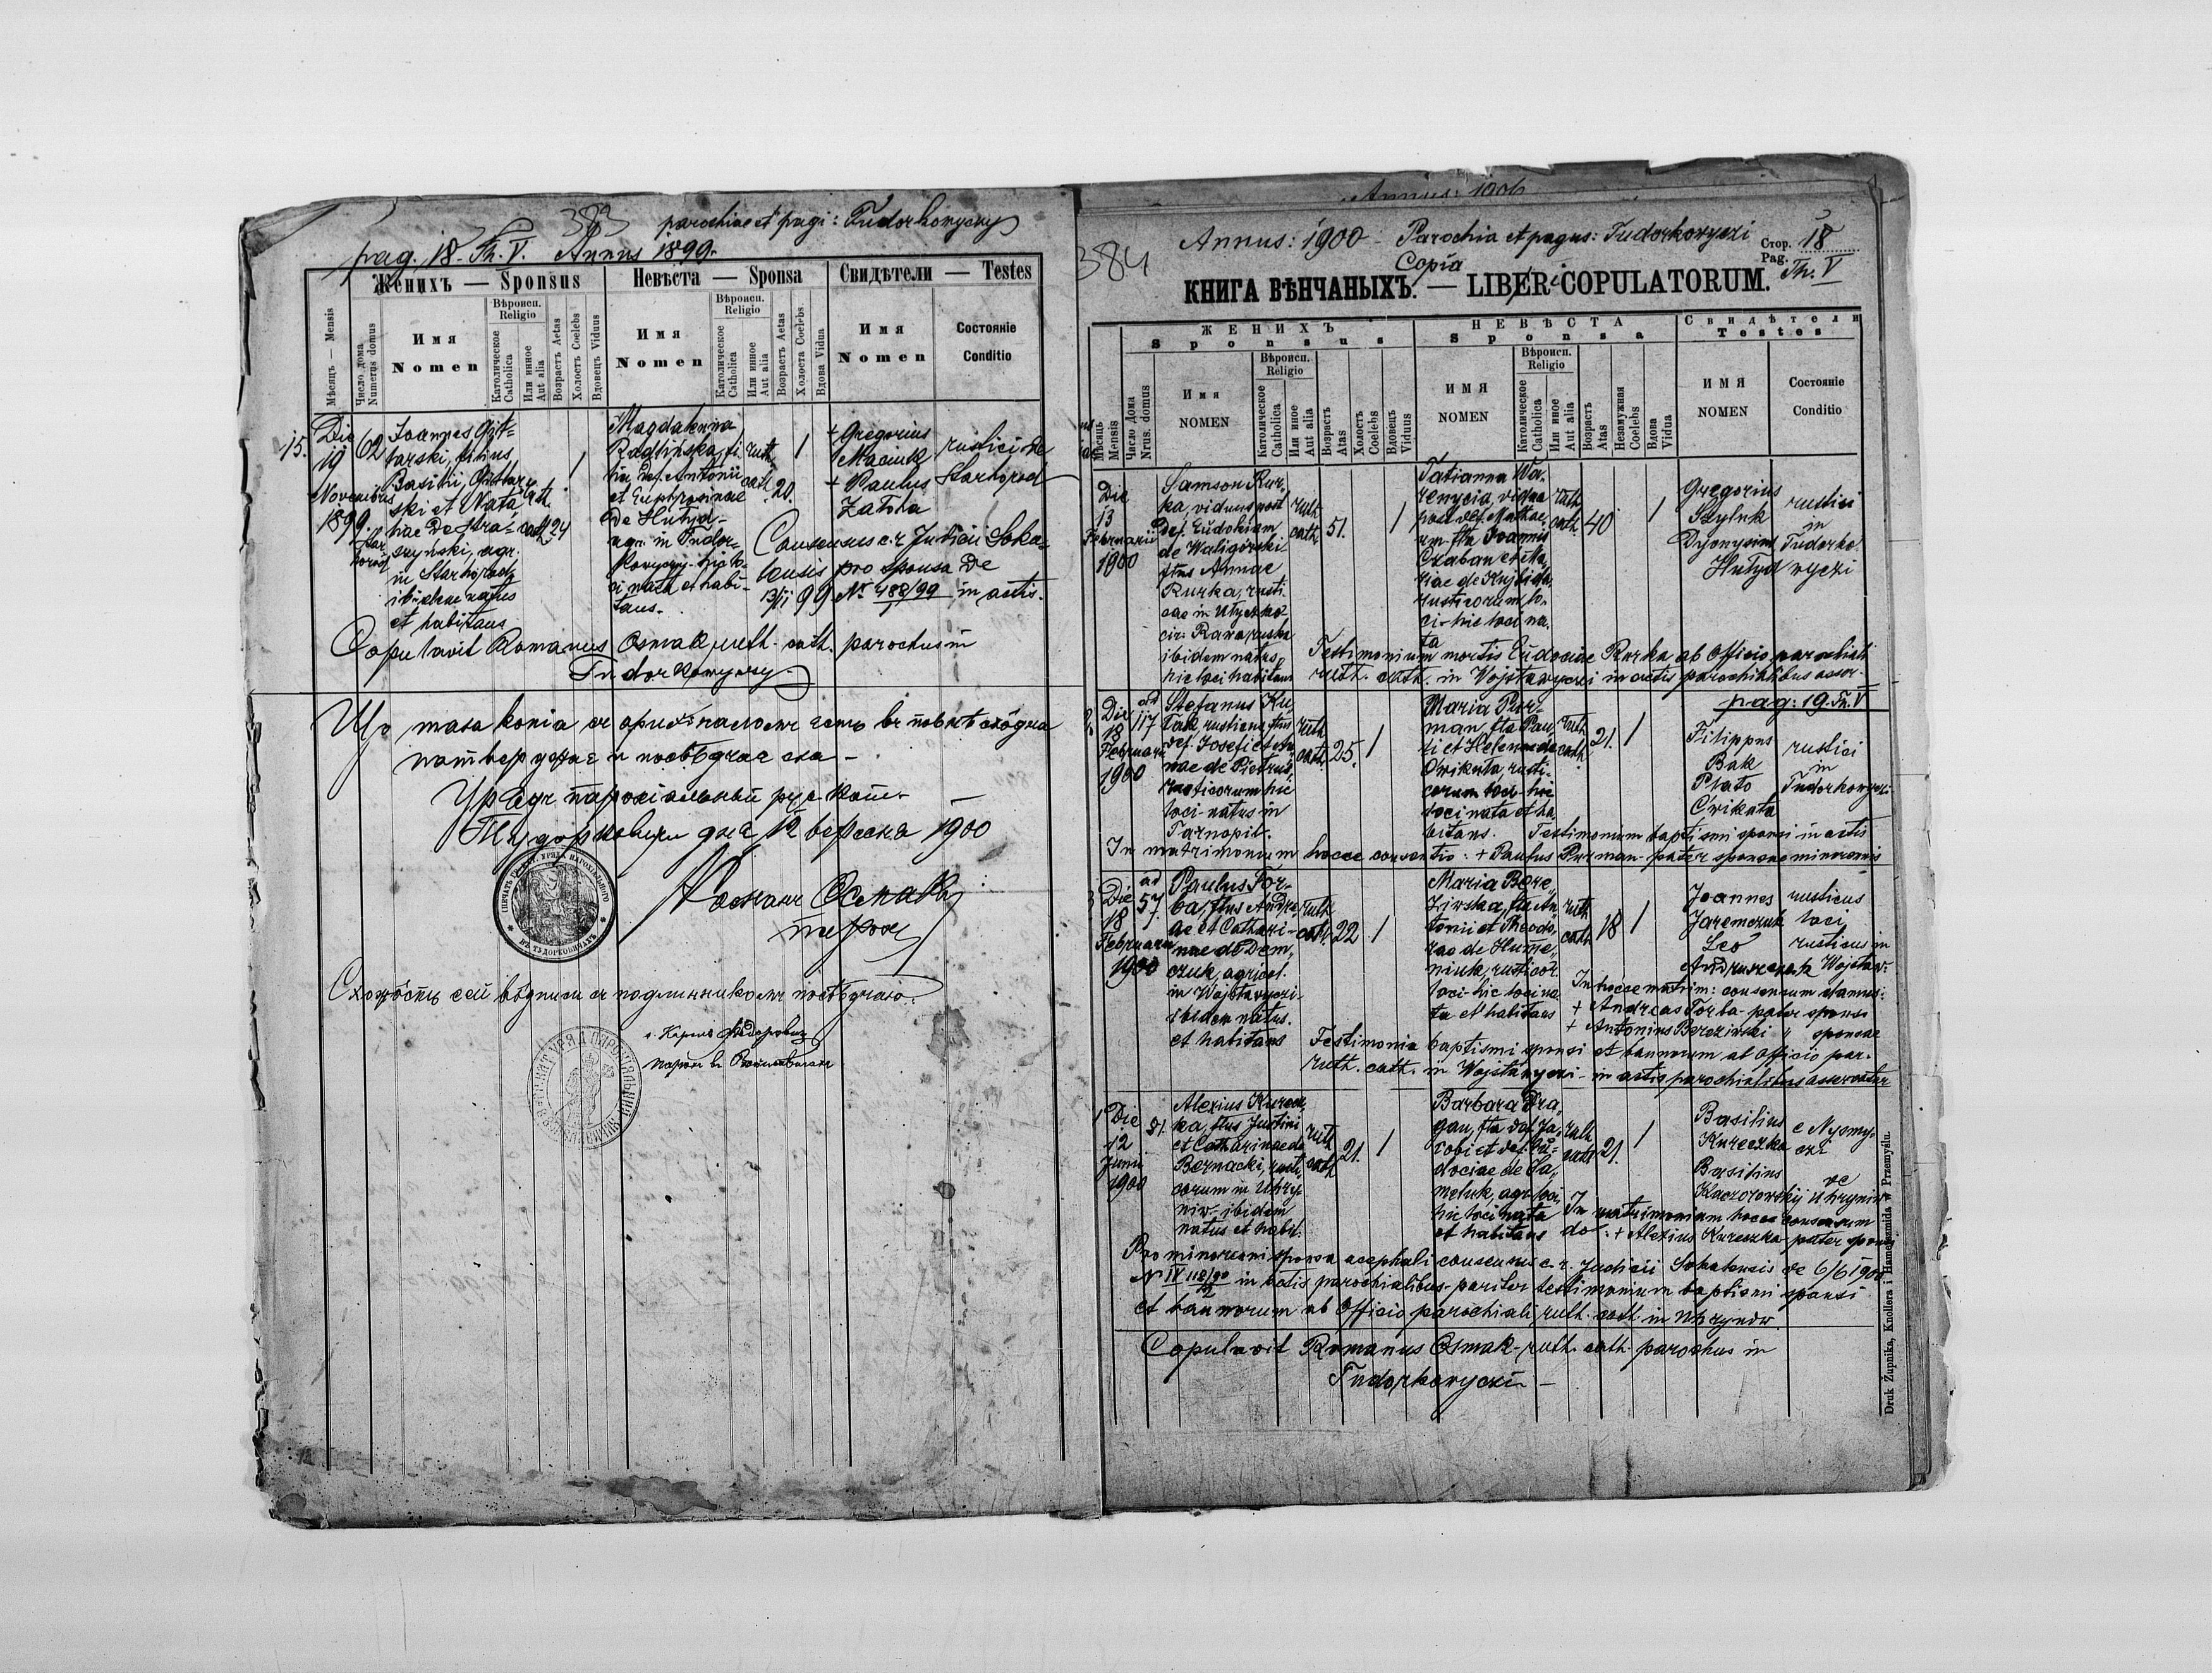 383 parochiae et pagi: Tudorkowyczy
pag. 18. Th. V. Annus 1899.
Женихъ — Sponsus
Невѣста — Sponsa
Свидѣтели — Testes
Мѣсяцъ — Mensis
Число дома
Numerus domus
Имя
Nomen
Вѣроисп.
Religio
Католическое
Catholica
Или инное
Aut alia
Возрастъ Aetas
Холостъ Coelebs
Вдовецъ Viduus
Имя
Nomen
Вѣроисп.
Religio
Католическое
Catholica
Или инное
Aut alia
Возрастъ Aetas
Холоста Coelebs
Вдова Vidua
Имя
Nomen
Состояніе
Conditio
15.
Die
19
Novembris
1899.
62
Joannes
filius
Basilii
ski et Nata-
liae de Stra-
szynski, agr.
in Starhorod
ibidem natus
et habitans
ruth.
cath.
24
1
Magdalenna
fi-
lia def. Antonii
et Euphrosinae
de Hutyd-
agr. in Tudor-
kowyczy- hic lo-
ci nata et habi-
tans-
ruth.
cath.
20.
1
+ Gregorius
Maciuk
+ Paulus
Zatoha
rustici de
Starhorod
Consensus c. r. Judicii Soka-
lensis pro sponsa de
13/11 99 № 488/99 in actis.
Copulavit Romanus Osmak, ruth. cath. parochus in
Tudorkowyczy.
Що тата копія съ оригіналомъ єсть въ повнѣ сходна
потверджає и посвѣдчає ся —
Урядъ парохіальный рус. кат. —
Тудорковичи дня 12 вересня 1900
Романъ Осмакъ
парох
Сходность сей вѣдписи съ подлинникомъ посвѣдчаю.
Annus: 1900
384
Annus: 1900 - Parochia et pagus: Tudorkowyczi
Стор. 18
Pag.
Th. V
Copia
КНИГА ВѢНЧАНЫХЪ. — LIBER COPULATORUM.
ЖЕНИХЪ
Sponsus
НЕВѢСТА
Sponsa
Свидѣтели
Testes
Мѣсяцъ
Mensis
Число Дома
Nrus. domus
Имя
NOMEN
Вѣроисп.
Religio
Католическое
Catholica
Или инное
Aut alia
Возрастъ
Atas
Холостъ
Coelebs
Вдовецъ
Viduus
ИМЯ
NOMEN
Вѣроисп.
Religio
Католическое
Catholica
Или инное
Aut alia
Возрастъ
Atas
Незамужная
Coelebs
Вдова
Vidua
ИМЯ
NOMEN
Состояніе
Conditio
Die
13
Februarii
1900
Samson Rur-
ka, viduus post
def. Eudokiam
de Waligórski
ftus Annae
Rurka, rusti-
cae in
cir. Rawa ruska
ibidem natus,
hic loci habitans
ruth.
cath.
51.
1
Tatianna Wa-
renycia, vidua
post def. Mathae-
um fta Joannis
Czaban et Ma-
riae de
rusticorum lo-
ci- hic loci na-
ta
ruth.
cath.
40
1
Gregorius
Szyluk
Dyonysius
Hutyd
rustici
in
Tudorko-
wyczi
Testimonium mortis Eudociae Rurka ab Officio parochiali
ruth. cath. in Wojsławyczi in actis parochialibus asser.
pag: 19. Th. V
2
Die
18
Februarii
1900
ad
117
Stefanus Ku-
lak, rusticus, ftus
def. Josefi et An-
nae de Pietrus,
rusticorum hic
loci- natus in
Tarnopil-
ruth.
cath.
25.
1
Maria Pur-
man, fta Pau-
li et Helenae de
Cwikuła, rusti-
corum loci- hic
loci nata et ha-
bitans.
ruth.
cath.
21.
1
Filippus
Bak
Plato
Cwikuła
rustici
in
Tudorkowyczi
Testimonium baptismi sponsi in actis
In matrimonium hocce consentio: + Paulus Purman- pater sponsae minorennis
3
Die
18
Februarii
1900
ad
57.
Paulus Tor-
ba, ftus Andre-
ae et Cathari-
nae de Dem-
czuk, agricol.
in Wojsławyczi-
ibidem natus.
et habitans
ruth.
cath.
22.
1
Maria Bere-
zinska, fta An-
tonii et Theodo-
rae de Hume-
niuk, rusticor.
loci- hic loci na-
ta et habitans
ruth.
cath.
18
1
Joannes
Jaremczuk
Leo
Andruszczak
rusticus
loci
rusticus in
Wojsław.
In hocce matrim: consensum damus:
+ Andreas Torba- pater sponsi
+ Antonius Berezinski " sponsae
Testimonia baptismi sponsi et bannorum ab Officio par.
ruth. cath. in Wojsławyczi- in actis parochialibus asservatur
Die
12
Junii
1900
Alexius Kurecz-
ka, ftus Justini
et Catharinae de
Bernacki, rusti-
corum in Uhry-
niw- ibidem
natus et habit.
ruth.
cath.
21.
1
Barbara Dra-
gan, fta def. Ja-
cobi et def. Eu-
dociae de Sa-
meluk, agr. loci
hic loci nata
et habitans
ruth.
cath.
21.
1
Basilius
Kureczka
Basilius
Kaczorowskij
de
Uhryniw
In matrimonium hocce consensum
do: + Alexius Kureczka- pater sponsi
Pro minorenni sponsa acephali consensus c. r. Judicii Sokalensis de 6/6 1900
in actis parochialibus- pariter testimonium baptismi sponsi
et bannorum ab Officio parochiali ruth. cath. in Uhryniw.
Copulavit Romanus Osmak- ruth. cath. parochus in
Tudorkowyczi —
Druk Żupnika, Knollera i Hamerszmida w Przemyślu.